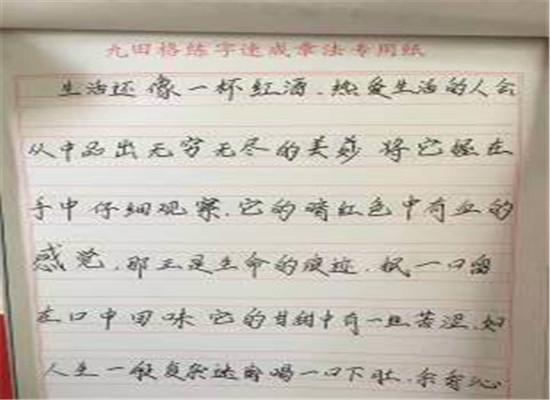 九田格练字速成章法专用纸
生活还像一杯红酒.热爱生活的人会
从中品出无穷无尽的美妙 将它握在
手中仔细观察.它的暗红色中有血的
感觉.那正是生命的痕迹.抿一口留
在口中回味 它的甘甜中有一丝苦涩.如
人生一般复杂迷离喝一口下肚.余香沁